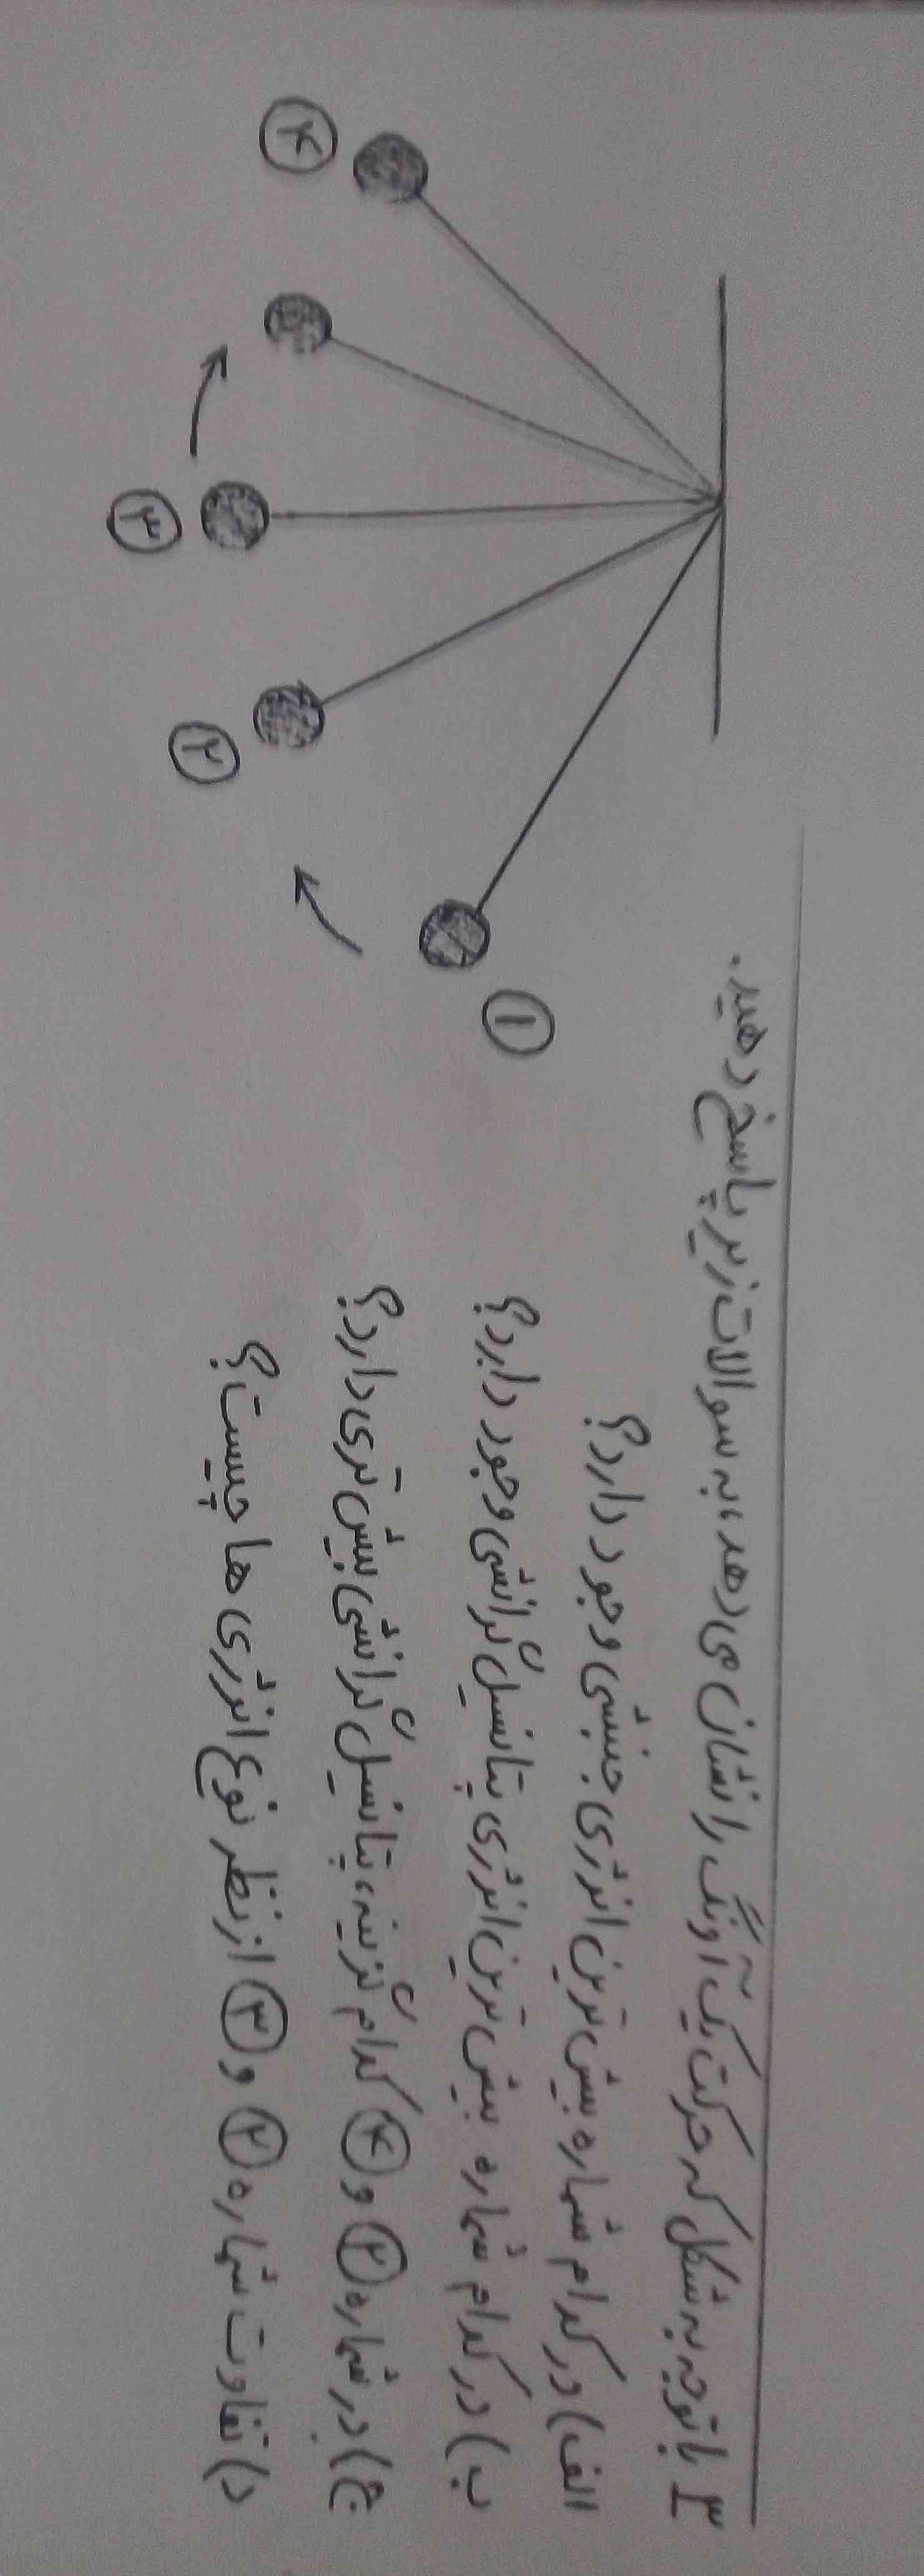 ۳_ با توجه به شکل که حرکت یک آونگ را نشان می دهد، به سوالات زیر پاسخ دهید.
الف) در کدام شماره بیش ترین انرژی جنبشی وجود دارد؟
ب) در کدام شماره بیش ترین انرژی پتانسیل گرانشی وجود دارد؟
ج) در شماره ۲ و ۴ کدام گزینه، پتانسیل گرانشی بیش تری دارد؟
د) تفاوت شماره ۲ و ۳ از نظر نوع انرژی ها چیست؟
۱
۲
۳
۴